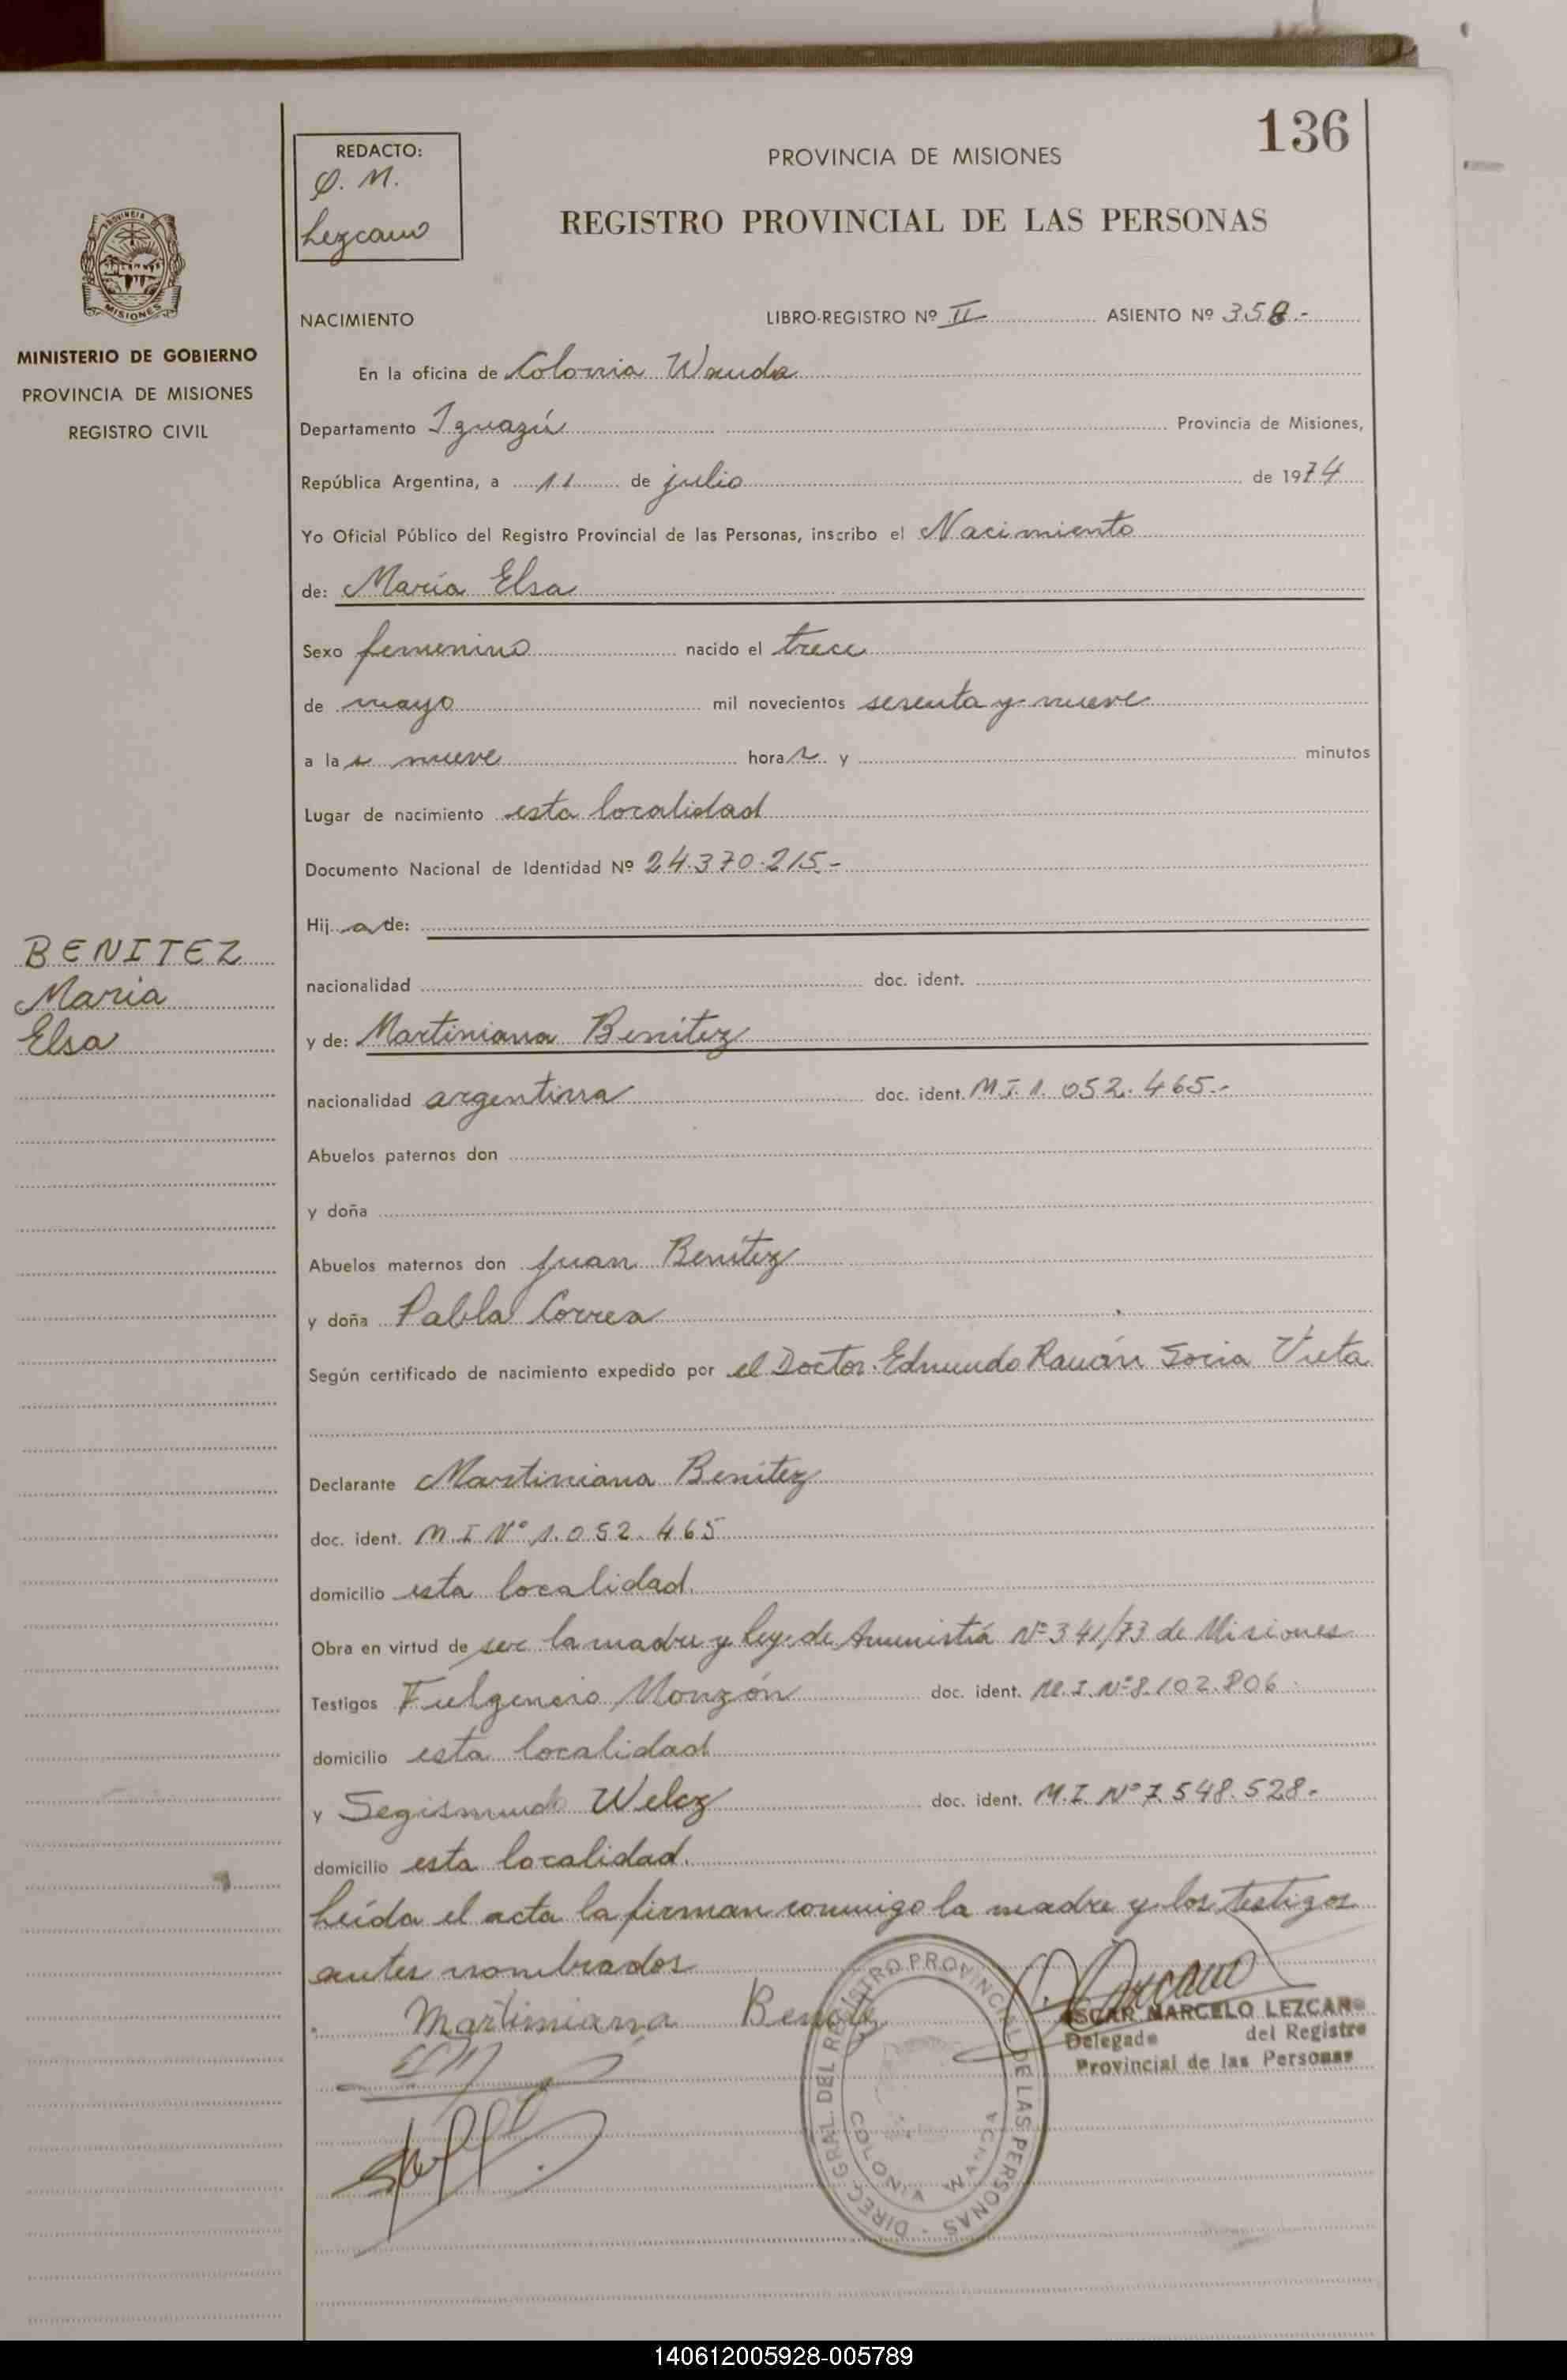 136
REDACTO:
O. M.
Lezcano
PROVINCIA DE MISIONES
REGISTRO PROVINCIAL DE LAS PERSONAS
PROVINCIA
MISIONES
MINISTERIO DE GOBIERNO
PROVINCIA DE MISIONES
REGISTRO CIVIL
BENITEZ
Maria
Elsa
NACIMIENTO LIBRO-REGISTRO Nº II ASIENTO Nº 358.-
En la oficina de Colonia Wanda
Departamento Iguazú Provincia de Misiones,
República Argentina, a 11 de julio de 1974
Yo Oficial Público del Registro Provincial de las Personas, inscribo el Nacimiento
de: María Elsa
Sexo femenino nacido el trece
de mayo mil novecientos sesenta y nueve
a las nueve horas y minutos
Lugar de nacimiento esta localidad
Documento Nacional de Identidad Nº 24.370.215.-
Hija de:
nacionalidad doc. ident.
y de: Martiniana Benítez
nacionalidad argentina doc. ident. M.I. 1.052.465.-
Abuelos paternos don
y doña
Abuelos maternos don Juan Benítez
y doña Pabla Correa
Según certificado de nacimiento expedido por el Doctor Edmundo Ramón Soria Vieta
Declarante Martiniana Benítez
doc. ident. M.I Nº 1.052.465
domicilio esta localidad.
Obra en virtud de ser la madre y ley de Amnistía Nº 341/73 de Misiones
Testigos Fulgencio Monzón doc. ident. M.I. Nº 8.102.806.
domicilio esta localidad
y Segismundo Welcz doc. ident. M.I. Nº 7.548.528.-
domicilio esta localidad.
Leída el acta la firman conmigo la madre y los testigos
antes nombrados
Martimiana Benitez
O. Lezcano
OSCAR MARCELO LEZCANO
Delegado del Registro
Provincial de las Personas
DIREC. GRAL. DEL REGISTRO PROVINCIAL DE LAS PERSONAS
COLONIA WANDA
140612005928-005789